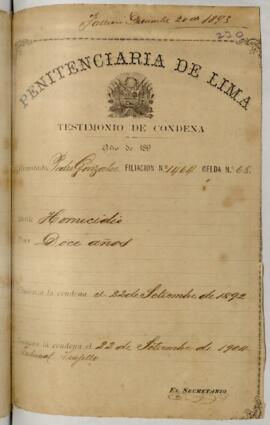 Falleció Diciembre 20 de 1893
230
PENITENCIARIA DE LIMA
TESTIMONIO DE CONDENA
Año de 189
Pedro Gonzales FILIACION N.º 1464 CELDA N.º 65.
Homicidio
Doce años
la condena el 22 de Setiembre de 1892
la condena el 22 de Setiembre de 1904
Tribunal Trujillo
EL SECRETARIO